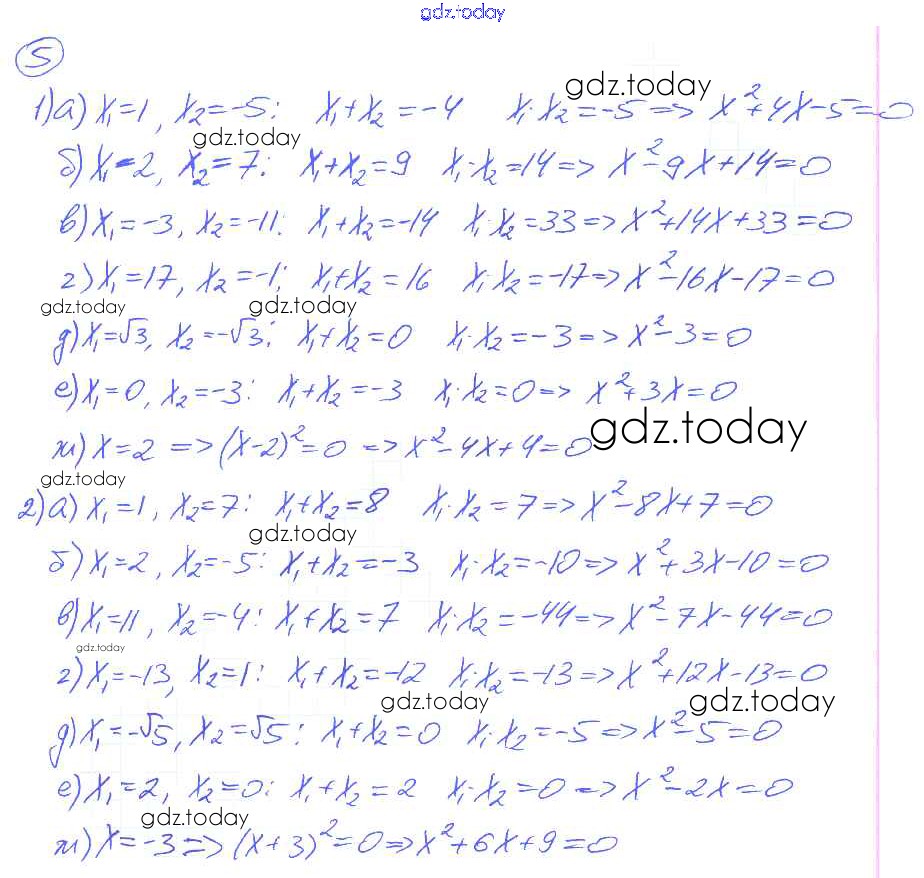 gdz.today
5
gdz.today
1) а) x₁=1, x₂=-5: x₁+x₂=-4 x₁·x₂=-5=> x²+4x-5=0
gdz.today
б) x₁=2, x₂=7: x₁+x₂=9 x₁·x₂=14=> x²-9x+14=0
в) x₁=-3, x₂=-11: x₁+x₂=-14 x₁·x₂=33=> x²+14x+33=0
г) x₁=17, x₂=-1; x₁+x₂=16 x₁·x₂=-17=> x²-16x-17=0
gdz.today gdz.today
д) x₁=√3, x₂=-√3: x₁+x₂=0 x₁·x₂=-3=> x²-3=0
е) x₁=0, x₂=-3: x₁+x₂=-3 x₁·x₂=0=> x²+3x=0
gdz.today
ж) x=2 => (x-2)²=0 => x²-4x+4=0
gdz.today
2) а) x₁=1, x₂=7: x₁+x₂=8 x₁·x₂=7=> x²-8x+7=0
gdz.today
б) x₁=2, x₂=-5: x₁+x₂=-3 x₁·x₂=-10=> x²+3x-10=0
в) x₁=11, x₂=-4: x₁+x₂=7 x₁·x₂=-44=> x²-7x-44=0
gdz.today
г) x₁=-13, x₂=1: x₁+x₂=-12 x₁·x₂=-13=> x²+12x-13=0
gdz.today gdz.today
д) x₁=-√5, x₂=√5: x₁+x₂=0 x₁·x₂=-5=> x²-5=0
е) x₁=2, x₂=0: x₁+x₂=2 x₁·x₂=0=> x²-2x=0
gdz.today
ж) x=-3=> (x+3)²=0=> x²+6x+9=0